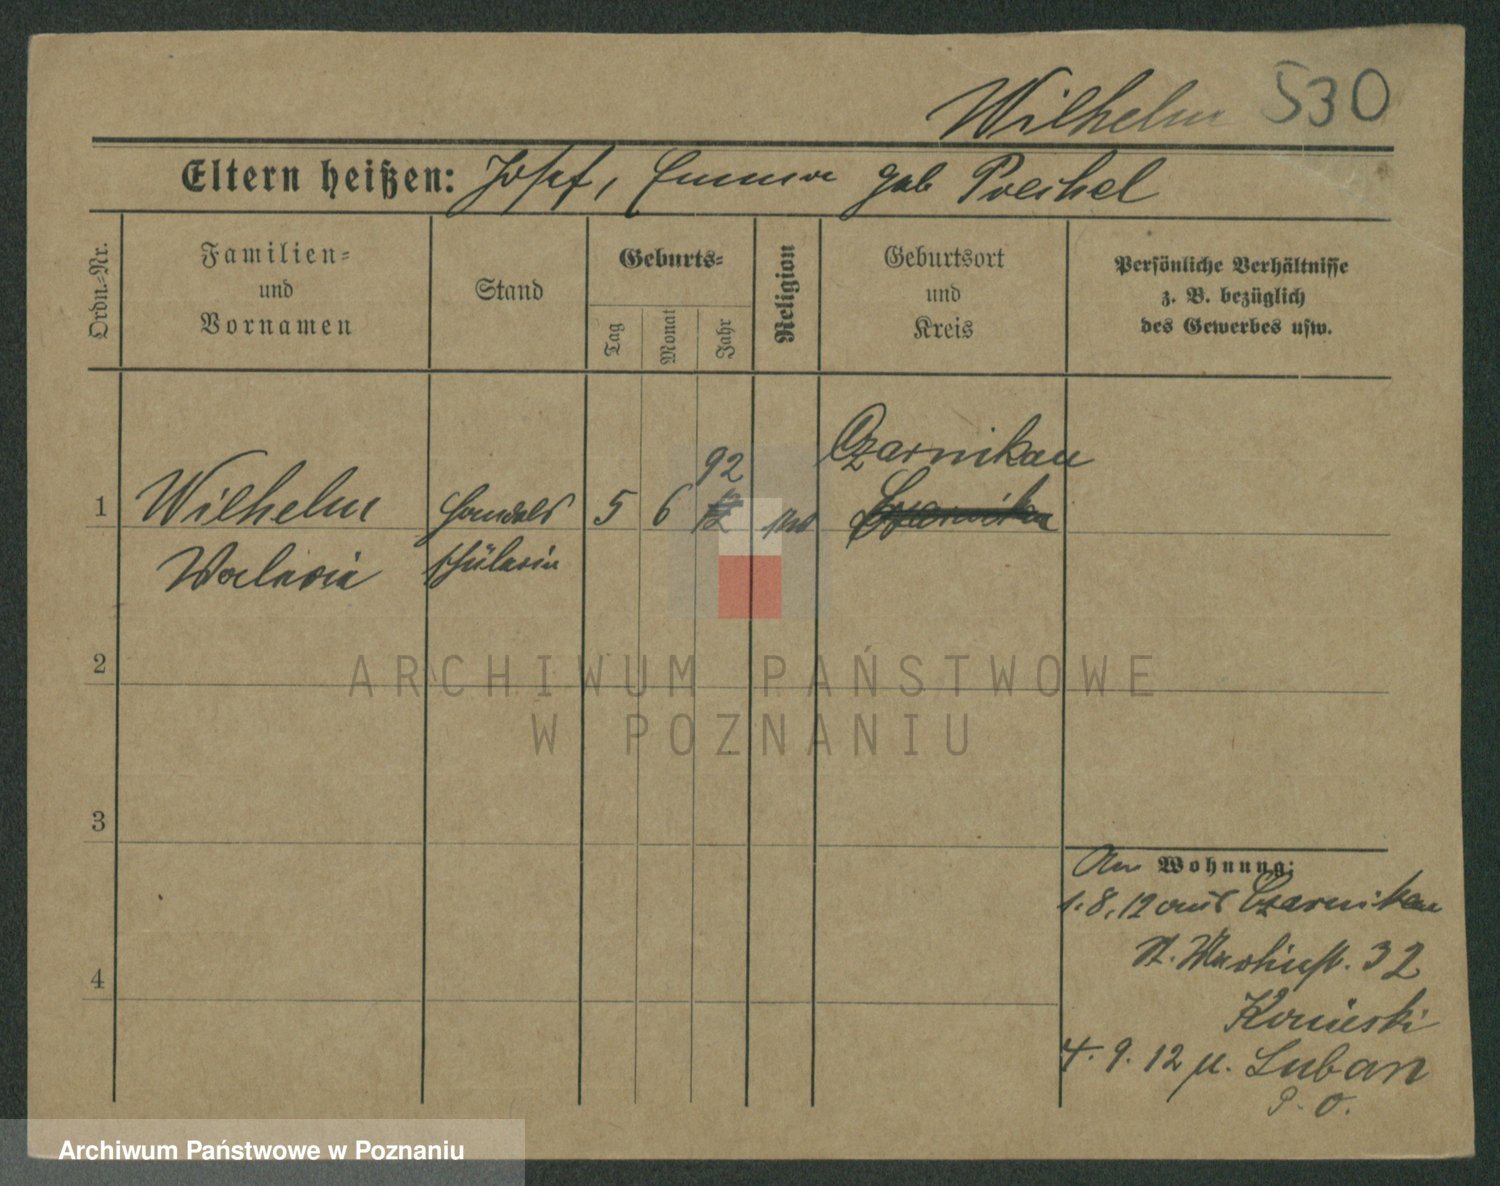 Wilhelm 530
Eltern heißen: Josef, Emma geb Preikel
Ordn.-Nr.
Familien-
und
Vornamen
Stand
Geburts-
Tag
Monat
Jahr
Religion
Geburtsort
und
Kreis
Persönliche Verhältnisse
z. B. bezüglich
des Gewerbes usw.
1
Wilhelm
Waleria
Handels
schülerin
5
6
92
12
Czarnikau
2
3
4
An Wohnung:
1.8.12 aus Czarnikau
St. Martinst. 32
4.9.12 n. Luban
P. O.
ARCHIWUM PAŃSTWOWE
W POZNANIU
Archiwum Państwowe w Poznaniu